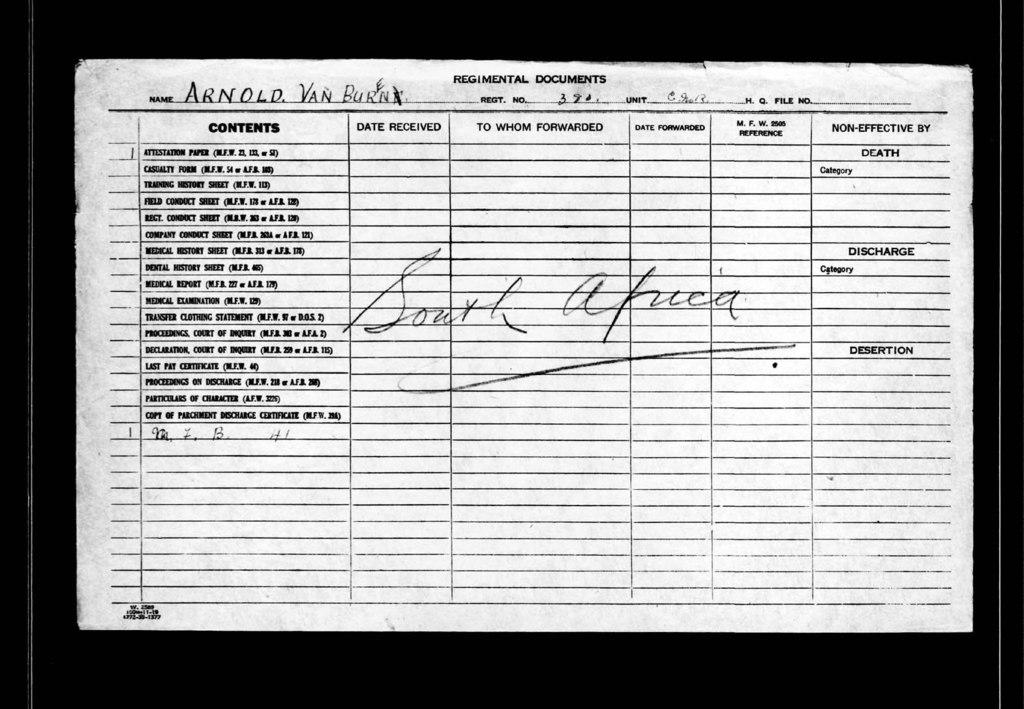 REGIMENTAL DOCUMENTS
NAME ARNOLD. VAN BUREN. REGT. NO. UNIT H. Q. FILE NO.
CONTENTS DATE RECEIVED TO WHOM FORWARDED DATE FORWARDED M. F. W. 2505 REFERENCE NON-EFFECTIVE BY
1 ATTESTATION PAPER (M.F.W. 23, 133, or 51) DEATH
CASUALTY FORM (M.F.W. 54 or A.F.B. 103) Category
TRAINING HISTORY SHEET (M.F.W. 113)
FIELD CONDUCT SHEET (M.F.W. 178 or A.F.B. 122)
REGT. CONDUCT SHEET (M.F.W. 263 or A.F.B. 120)
COMPANY CONDUCT SHEET (M.F.B. 263A or A.F.B. 121)
MEDICAL HISTORY SHEET (M.F.B. 313 or A.F.B. 178) DISCHARGE
DENTAL HISTORY SHEET (M.F.B. 465) Category
MEDICAL REPORT (M.F.B. 227 or A.F.B. 179)
MEDICAL EXAMINATION (M.F.W. 129)
South Africa
TRANSFER CLOTHING STATEMENT (M.F.W. 97 or D.O.S. 2)
PROCEEDINGS, COURT OF INQUIRY (M.F.B. 303 or A.F.A. 2)
DECLARATION, COURT OF INQUIRY (M.F.B. 259 or A.F.B. 115) DESERTION
LAST PAY CERTIFICATE (M.F.W. 44)
PROCEEDINGS ON DISCHARGE (M.F.W. 218 or A.F.B. 268)
PARTICULARS OF CHARACTER (A.F.W. 3226)
COPY OF PARCHMENT DISCHARGE CERTIFICATE (M.F.W. 39A)
1 M. F. B. 41